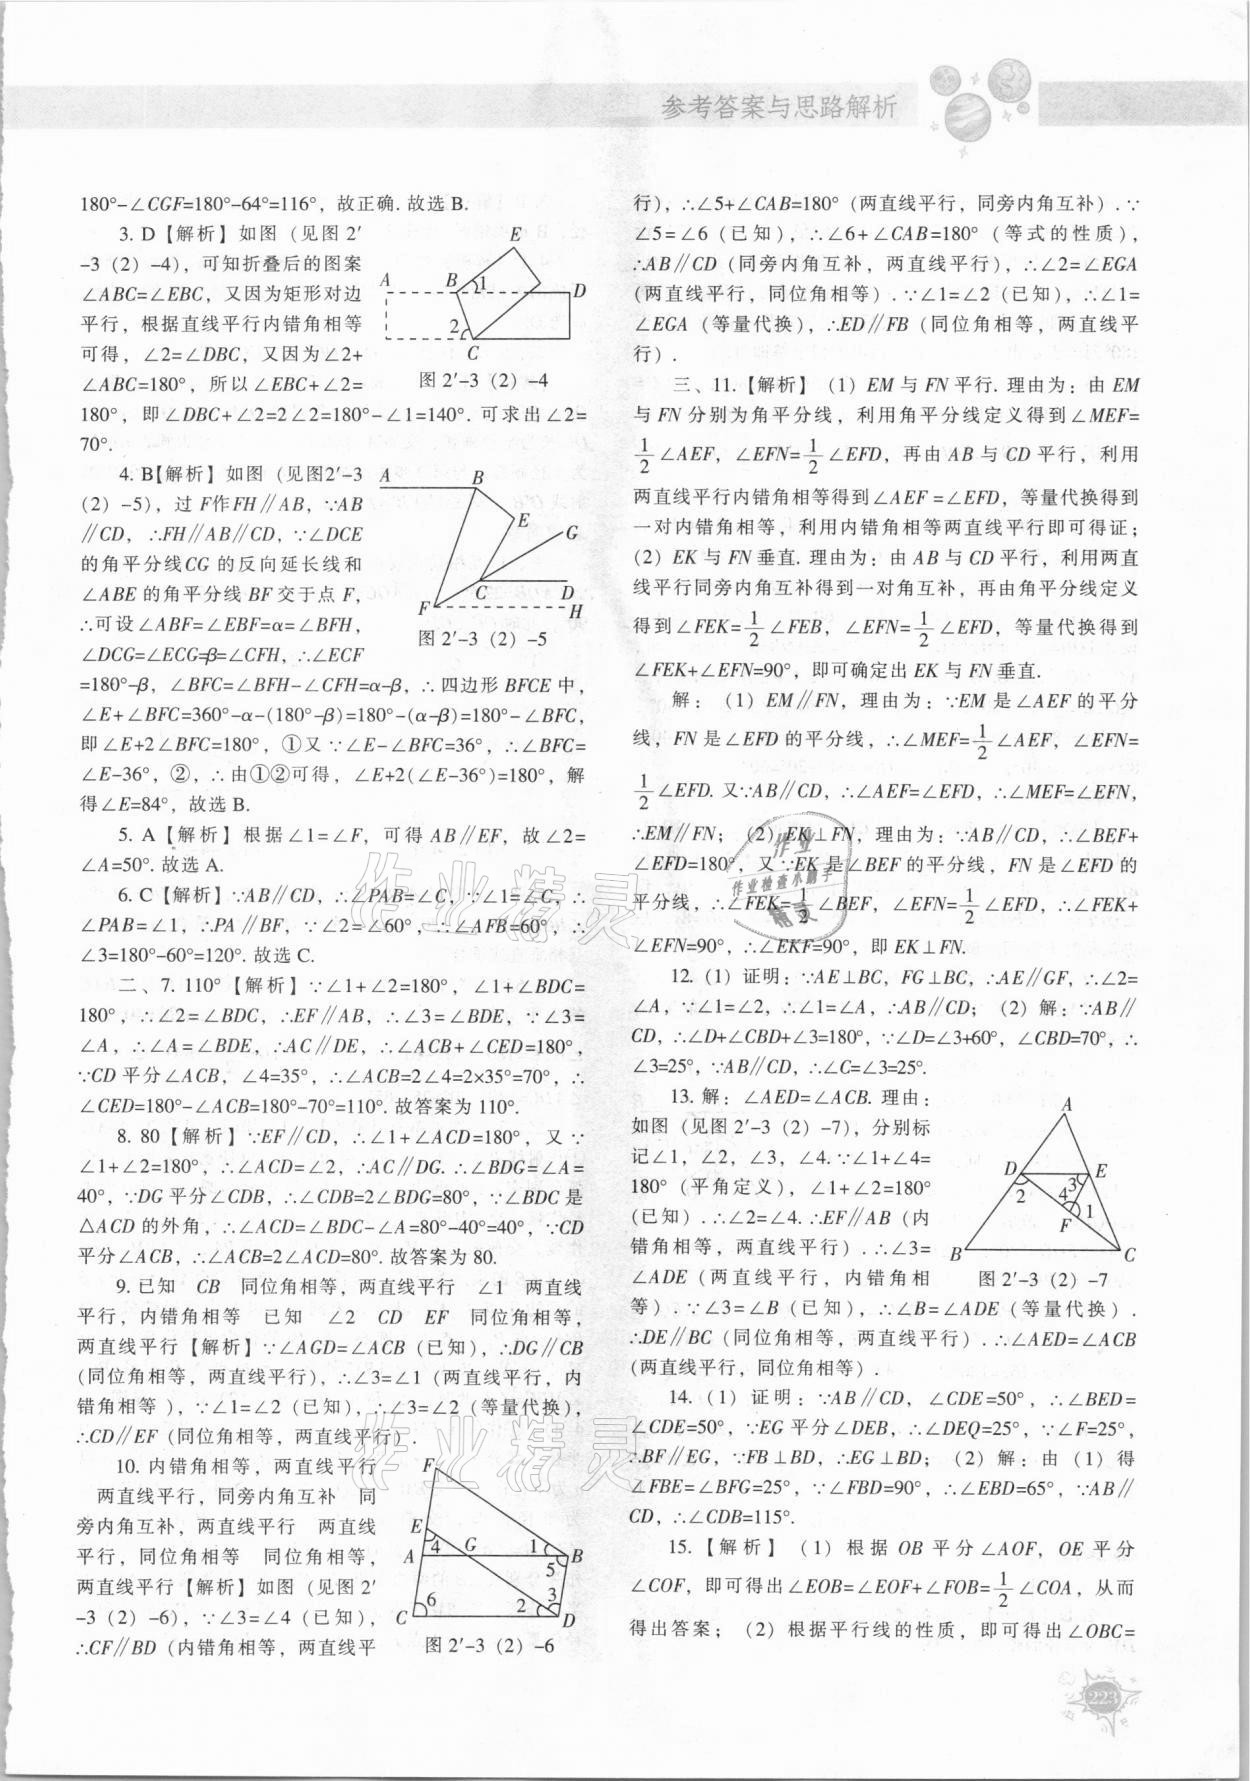 参考答案与思路解析
180°-∠CGF=180°-64°=116°，故正确.故选 B.
3. D【解析】如图（见图 2′
-3（2）-4），可知折叠后的图案
∠ABC=∠EBC，又因为矩形对边
平行，根据直线平行内错角相等
可得，∠2=∠DBC，又因为∠2+
∠ABC=180°，所以∠EBC+∠2=
E
A
B
1
D
2
C
图 2′-3（2）-4
180°，即∠DBC+∠2=2∠2=180°-∠1=140°.可求出∠2=
70°.
4. B【解析】如图（见图2′-3
（2）-5），过 F作FH∥AB，∵AB
∥CD，∴FH∥AB∥CD，∵∠DCE
的角平分线CG 的反向延长线和
∠ABE 的角平分线 BF 交于点 F，
∴可设∠ABF=∠EBF=α=∠BFH，
∠DCG=∠ECG=β=∠CFH，∴∠ECF
A
B
E
G
C
D
F
H
图 2′-3（2）-5
=180°-β，∠BFC=∠BFH-∠CFH=α-β，∴四边形 BFCE 中，
∠E+∠BFC=360°-α-(180°-β)=180°-(α-β)=180°-∠BFC，
即∠E+2∠BFC=180°，①又∵∠E-∠BFC=36°，∴∠BFC=
∠E-36°，②，∴由①②可得，∠E+2(∠E-36°)=180°，解
得∠E=84°，故选 B.
5. A【解析】根据∠1=∠F，可得 AB∥EF，故∠2=
∠A=50°.故选 A.
6. C【解析】∵AB∥CD，∴∠PAB=∠C，∵∠1=∠C，∴
∠PAB=∠1，∴PA∥BF，∵∠2=∠60°，∴∠AFB=60°，∴
∠3=180°-60°=120°.故选 C.
二、7. 110°【解析】∵∠1+∠2=180°，∠1+∠BDC=
180°，∴∠2=∠BDC，∴EF∥AB，∴∠3=∠BDE，∵∠3=
∠A，∴∠A=∠BDE，∴AC∥DE，∴∠ACB+∠CED=180°，
∵CD 平分∠ACB，∠4=35°，∴∠ACB=2∠4=2×35°=70°，∴
∠CED=180°-∠ACB=180°-70°=110°.故答案为 110°.
8. 80【解析】∵EF∥CD，∴∠1+∠ACD=180°，又∵
∠1+∠2=180°，∴∠ACD=∠2，∴AC∥DG.∴∠BDG=∠A=
40°，∵DG 平分∠CDB，∴∠CDB=2∠BDG=80°，∵∠BDC 是
△ACD 的外角，∴∠ACD=∠BDC-∠A=80°-40°=40°，∵CD
平分∠ACB，∴∠ACB=2∠ACD=80°.故答案为 80.
9. 已知　CB　同位角相等，两直线平行　∠1　两直线
平行，内错角相等　已知　∠2　CD　EF　同位角相等，
两直线平行【解析】∵∠AGD=∠ACB（已知），∴DG∥CB
(同位角相等，两直线平行)，∴∠3=∠1（两直线平行，内
错角相等），∵∠1=∠2（已知），∴∠3=∠2（等量代换），
∴CD∥EF（同位角相等，两直线平行）.
10. 内错角相等，两直线平行
两直线平行，同旁内角互补　同
旁内角互补，两直线平行　两直线
平行，同位角相等　同位角相等，
两直线平行【解析】如图（见图 2′
-3（2）-6），∵∠3=∠4（已知），
∴CF∥BD（内错角相等，两直线平
F
E
4
G
1
A
B
5
6
3
2
C
D
图 2′-3（2）-6
行），∴∠5+∠CAB=180°（两直线平行，同旁内角互补）.∵
∠5=∠6（已知），∴∠6+∠CAB=180°（等式的性质），
∴AB∥CD（同旁内角互补，两直线平行），∴∠2=∠EGA
(两直线平行，同位角相等）.∵∠1=∠2（已知），∴∠1=
∠EGA（等量代换），∴ED∥FB（同位角相等，两直线平
行）.
三、11.【解析】（1）EM 与 FN 平行.理由为：由 EM
与 FN 分别为角平分线，利用角平分线定义得到∠MEF=
1/2∠AEF，∠EFN=1/2∠EFD，再由 AB 与 CD 平行，利用
两直线平行内错角相等得到∠AEF=∠EFD，等量代换得到
一对内错角相等，利用内错角相等两直线平行即可得证；
（2）EK 与 FN 垂直.理由为：由 AB 与 CD 平行，利用两直
线平行同旁内角互补得到一对角互补，再由角平分线定义
得到∠FEK=1/2∠FEB，∠EFN=1/2∠EFD，等量代换得到
∠FEK+∠EFN=90°，即可确定出 EK 与 FN 垂直.
解：（1）EM∥FN，理由为：∵EM 是∠AEF 的平分
线，FN 是∠EFD 的平分线，∴∠MEF=1/2∠AEF，∠EFN=
1/2∠EFD.又∵AB∥CD，∴∠AEF=∠EFD，∴∠MEF=∠EFN，
∴EM∥FN；（2）EK⊥FN，理由为：∵AB∥CD，∴∠BEF+
∠EFD=180°，又∵EK 是∠BEF 的平分线，FN 是∠EFD 的
平分线，∴∠FEK=1/2∠BEF，∠EFN=1/2∠EFD，∴∠FEK+
∠EFN=90°，∴∠EKF=90°，即 EK⊥FN.
12.（1）证明：∵AE⊥BC，FG⊥BC，∴AE∥GF，∴∠2=
∠A，∵∠1=∠2，∴∠1=∠A，∴AB∥CD；（2）解：∵AB∥
CD，∴∠D+∠CBD+∠3=180°，∵∠D=∠3+60°，∠CBD=70°，∴
∠3=25°，∵AB∥CD，∴∠C=∠3=25°.
13. 解：∠AED=∠ACB. 理由：
如图（见图 2′-3（2）-7），分别标
记∠1，∠2，∠3，∠4.∵∠1+∠4=
180°（平角定义），∠1+∠2=180°
(已知）.∴∠2=∠4.∴EF∥AB（内
错角相等，两直线平行）.∴∠3=
∠ADE（两直线平行，内错角相
等）.∵∠3=∠B（已知），∴∠B=∠ADE（等量代换）.
A
D
E
2
3
4
1
F
B
C
图 2′-3（2）-7
∴DE∥BC（同位角相等，两直线平行）.∴∠AED=∠ACB
(两直线平行，同位角相等）.
14.（1）证明：∵AB∥CD，∠CDE=50°，∴∠BED=
∠CDE=50°，∵EG 平分∠DEB，∴∠DEQ=25°，∵∠F=25°，
∴BF∥EG，∵FB⊥BD，∴EG⊥BD；（2）解：由（1）得
∠FBE=∠BFG=25°，∵∠FBD=90°，∴∠EBD=65°，∵AB∥
CD，∴∠CDB=115°.
15.【解析】（1）根据 OB 平分∠AOF，OE 平分
∠COF，即可得出∠EOB=∠EOF+∠FOB=1/2∠COA，从而
得出答案；（2）根据平行线的性质，即可得出∠OBC=
作业精灵
作业
作业检查小助手
精灵
作业精灵
223